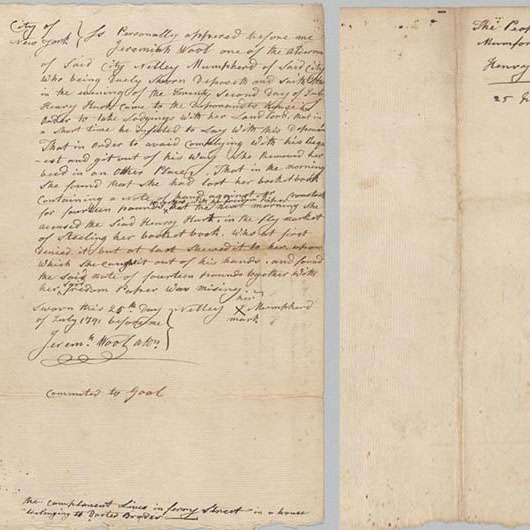 City of
New York } Ss Personally appeared before me
Jeremiah Wool one of the Alderm
of Said City Nelley Mumpherd of Said City
Who being Duely Shorn Deposeth and Saith that
in the evening of the Twenty Second Day of July
Henry Hurk came to the Deponants House in
Order to take Lodgings with her Landlord, that in
a Short time he Insisted to Lay With this Deponan
That in Order to avoid complying With his Requ
-est and git out of his Way She Removed her
beed in an Other Place, That in the morning
She found that She had lost her bocket book
Containing a Note of hand against
for fourteen pound
that the next morning She
accused the Said Henry Hurk, in the fly market
of Steeling her bocket book, Who at first
denied it but at last Shewed it to her, upon
Which She caught it out of his hands, and found
the said note of fourteen pounds together With
her Said freedom Paper Was missing.
Sworn this 25th Day
of July 1791 before me } Nelley her X mark Mumpherd
Jeremh Wool Aldn
Commited to Goal
the complainent Lives in ferry Street in a house
belonging to
The Peop
Mumfor
Henry
25 Ju